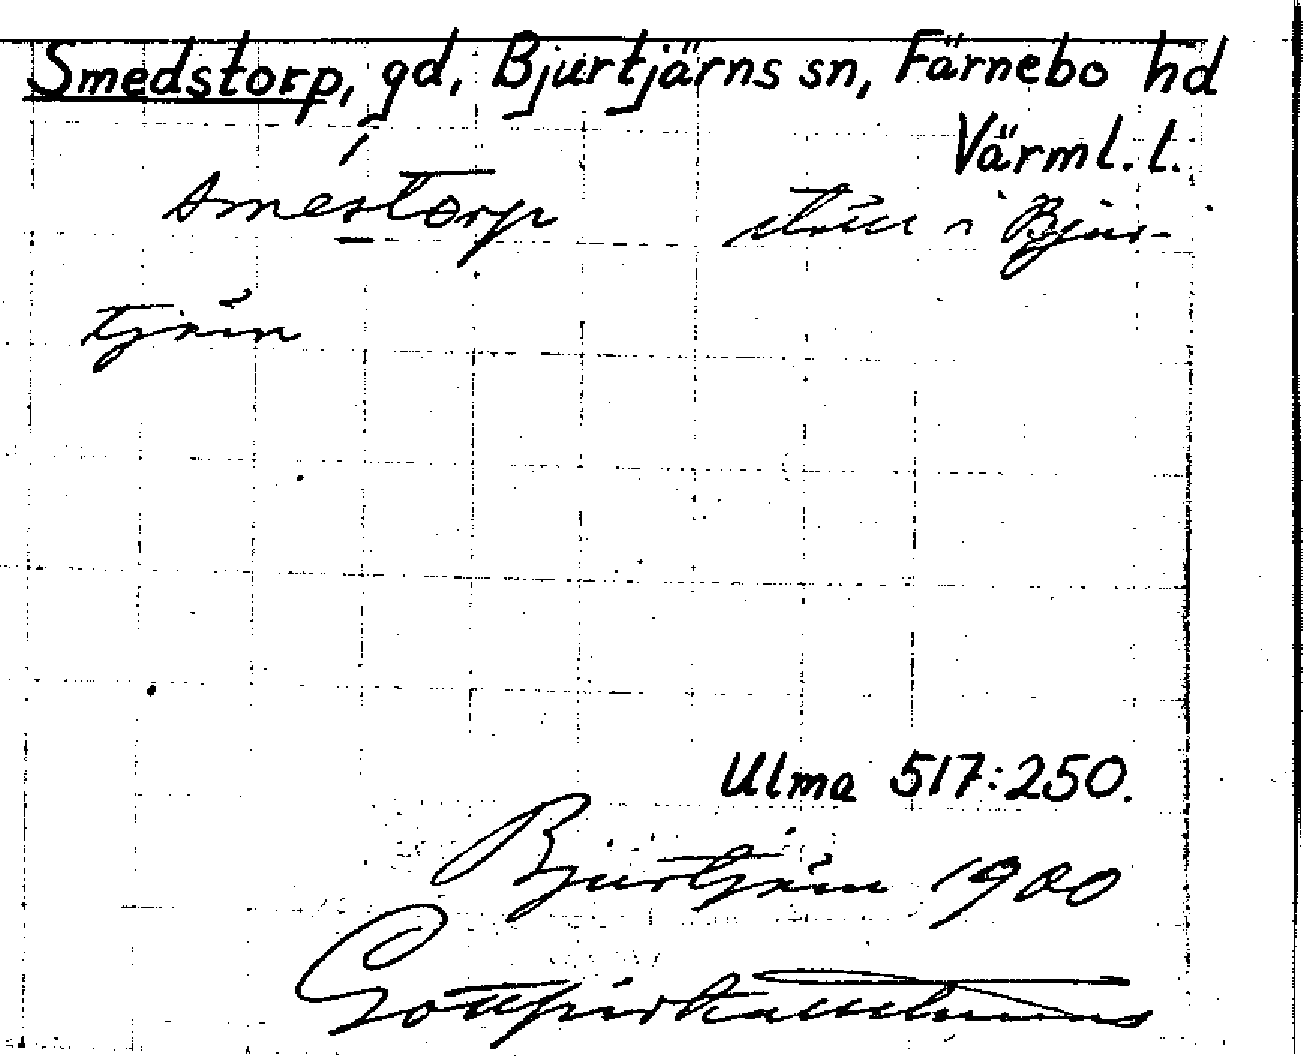 Smedstorp, gd, Bjurtjärns sn, Färnebo hd
Värml. l.
smestorp ställe i Bjur-
tjärn
Ulma 517:250.
Bjurtjärn 1900